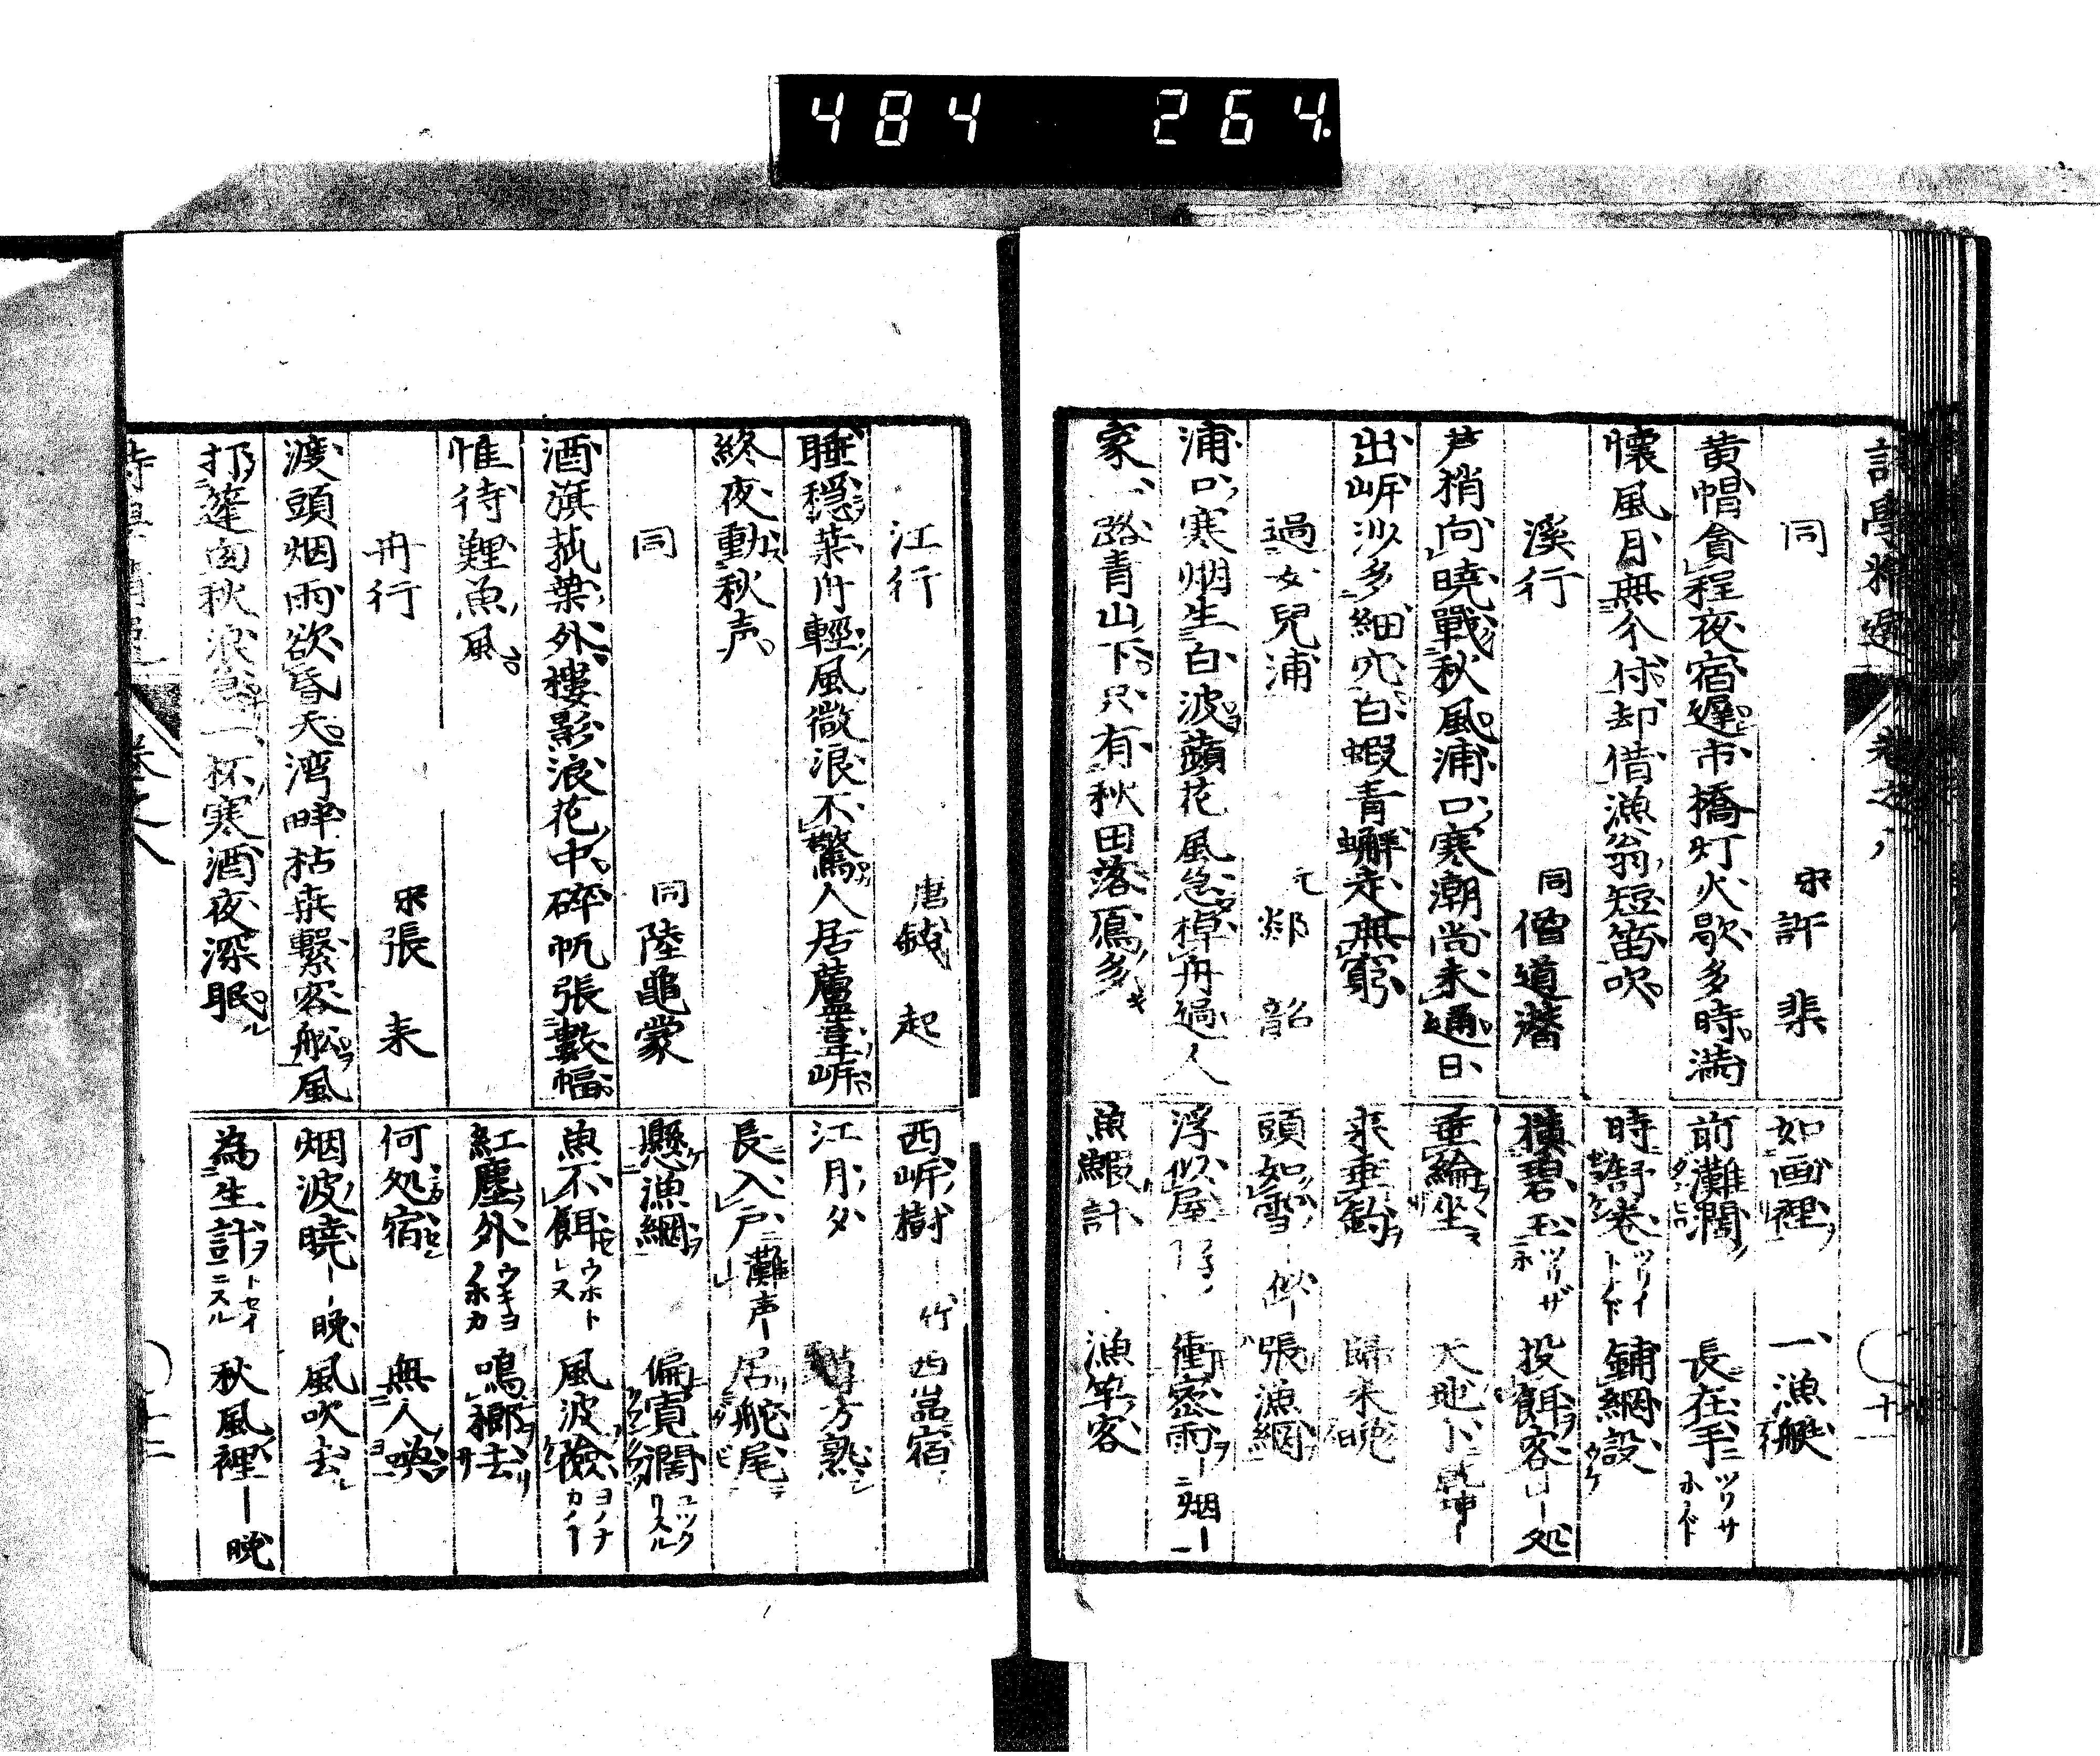 484 264
同 宋 許棐
黄帽貪程夜宿遅市橋灯火歇多時満
懐風月無分付却借漁翁短笛吹
溪行 同 僧道潜
芦梢向曉戰秋風浦口寒潮尚未通日
出岍沙多細穴白蝦青蠏走無窮
過女兒浦 元 郯韶
浦口寒烟生白波蘋花風急棹舟過人
家一路青山下只有秋田落鳫多
如画裡 一漁艇
前灘濶 長在手 ツリサホノド
時舒卷 ツリイトノド 鋪網設
積碧玉 投餌客
垂綸坐 天地小 乾坤｜
来垂釣 歸来晚
頭如雪 張漁網
浮似屋 衝密雨 ｜烟｜
魚鰕計 漁竿客
江行 唐 銭起
睡穏葉舟輕風微浪不驚人居蘆葦岍
終夜動秋声
同 同 陸龜蒙
酒旗菰葉外樓影浪花中碎帆張數幅
惟待鯉魚風
舟行 宋 張耒
渡頭烟雨欲昏天湾畔枯桒繫客舩風
打篷囱秋浪急一杯寒酒夜深眠
西岍樹 ｜竹 西嵓宿
江月夕 方熟
長入戸 灘声｜ 居舵尾
懸漁網 偏寛濶
魚不餌 ウホト 風波險 ヨノナカノ｜
紅塵外 ウキヨノホカ 鳴榔去
何処宿 無人喚
烟波曉 ｜晚 風吹去
為生計 トセイニスル 秋風裡 ｜晚